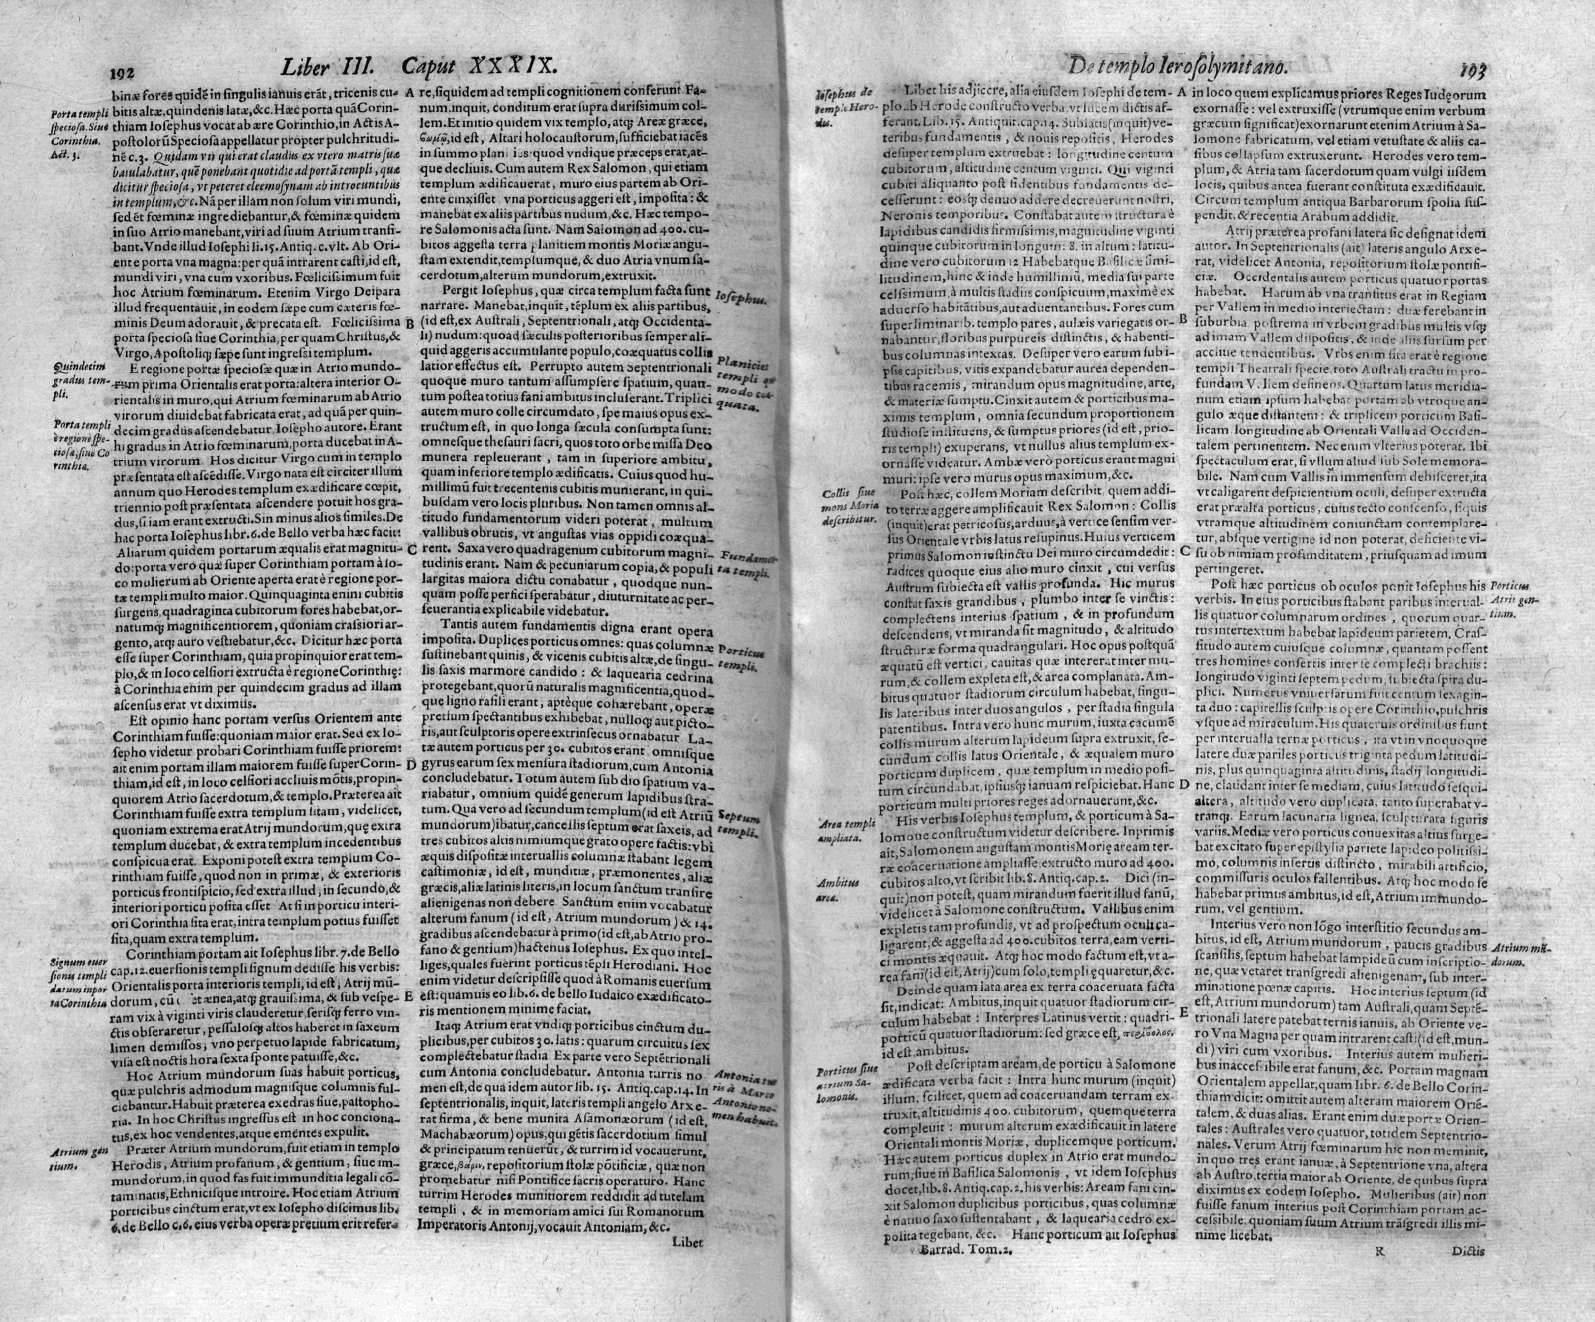 192
Liber III. Caput XXXIX.
Porta templi
ſpecioſa. Siue
Corinthia.
Act. 3.
Quindecim
gradus tem-
pli.
Porta templi
è regione ſpe-
cioſæ, ſiue Co
rinthia.
Signum euer
ſionis templi
datum in por
ta Corinthia
Atrium gen
tium.
binæ fores quidẽ in ſingulis ianuis erãt, tricenis cu-
bitis altæ, quindenis latæ, &c. Hæc porta quã Corin-
thiam Ioſephus vocat ab ære Corinthio, in Actis A-
poſtolorũ Specioſa appellatur propter pulchritudi-
nẽ c. 3. Quidam vir qui erat claudus ex vtero matris ſuæ
baiulabatur, quẽ ponebant quotidie ad portã templi, quæ
dicitur ſpecioſa, vt peteret eleemoſynam ab introeuntibus
in templum, &c. Nã per illam non ſolum viri mundi,
ſed et fœminæ ingrediebantur, & fœminæ quidem
in ſuo Atrio manebant, viri ad ſuum Atrium tranſi-
bant. Vnde illud Ioſephi li. 15. Antiq. c. vlt. Ab Ori-
ente porta vna magna: per quã intrarent caſti, id eſt,
mundi viri, vna cum vxoribus. Fœliciſsimum fuit
hoc Atrium fœminarum. Etenim Virgo Deipara
illud frequentauit, in eodem ſæpe cum cæteris fœ-
minis Deum adorauit, & precata eſt. Fœliciſsima
porta ſpecioſa ſiue Corinthia, per quam Chriſtus, &
Virgo, Apoſtoliq́; ſæpe ſunt ingreſsi templum.
E regione portæ ſpecioſæ quæ in Atrio mundo-
rum prima Orientalis erat porta: altera interior O-
rientalis in muro, qui Atrium fœminarum ab Atrio
virorum diuidebat fabricata erat, ad quã per quin-
decim gradus aſcendebatur, Ioſepho autore. Erant
hi gradus in Atrio fœminarum, porta ducebat in A-
trium virorum Hos dicitur Virgo cum in templo
præſentata eſt aſcẽdiſſe. Virgo nata eſt circiter illum
annum quo Herodes templum exædificare cœpit,
triennio poſt præſentata aſcendere potuit hos gra-
dus, ſi iam erant extructi. Sin minus alios ſimiles. De
hac porta Ioſephus libr. 6. de Bello verba hæc facit:
Aliarum quidem portarum æqualis erat magnitu-
do: porta vero quæ ſuper Corinthiam portam à lo-
co mulierum ab Oriente aperta erat è regione por-
tæ templi multo maior. Quinquaginta enini cubitis
ſurgens, quadraginta cubitorum fores habebat, or-
natumq́; magnificentiorem, quoniam craſsiori ar-
gento, atq́; auro veſtiebatur, &c. Dicitur hæc porta
eſſe ſuper Corinthiam, quia propinquior erat tem-
plo, & in loco celſiori extructa è regione Corinthię:
à Corinthia enim per quindecim gradus ad illam
aſcenſus erat vt diximus.
Eſt opinio hanc portam verſus Orientem ante
Corinthiam fuiſſe: quoniam maior erat. Sed ex Io-
ſepho videtur probari Corinthiam fuiſſe priorem:
ait enim portam illam maiorem fuiſſe ſuper Corin-
thiam, id eſt, in loco celſiori accliuis mõtis, propin-
quiorem Atrio ſacerdotum, & templo. Præterea ait
Corinthiam fuiſſe extra templum ſitam, videlicet,
quoniam extrema erat Atrij mundorum, quę extra
templum ducebat, & extra templum incedentibus
conſpicua erat. Exponi poteſt extra templum Co-
rinthiam fuiſſe, quod non in primæ, & exterioris
porticus frontiſpicio, ſed extra illud, in ſecundo, &
interiori porticu poſita eſſet At ſi in porticu interi-
ori Corinthia ſita erat, intra templum potius fuiſſet
ſita, quam extra templum.
Corinthiam portam ait Ioſephus libr. 7. de Bello
cap. 12. euerſionis templi ſignum dediſſe his verbis:
Orientalis porta interioris templi, id eſt, Atrij mũ-
dorum, cũ eſſet ænea, atq́; grauiſsima, & ſub veſpe-
ram vix à viginti viris clauderetur, ſeriſq́; ferro vin-
ctis obſeraretur, peſſuloſq́; altos haberet in ſaxeum
limen demiſſos, vno perpetuo lapide fabricatum,
viſa eſt noctis hora ſexta ſponte patuiſſe, &c.
Hoc Atrium mundorum ſuas habuit porticus,
quæ pulchris admodum magniſque columnis ful-
ciebantur. Habuit præterea exedras ſiue, paſtopho-
ria. In hoc Chriſtus ingreſſus eſt in hoc conciona-
tus, ex hoc vendentes, atque ementes expulit.
Præter Atrium mundorum, fuit etiam in templo
Herodis, Atrium profanum, & gentium, ſiue im-
mundorum, in quod fas fuit immunditia legali cõ-
taminatis, Ethniciſque introire. Hoc etiam Atrium
porticibus cinctum erat, vt ex Ioſepho diſcimus lib.
6. de Bello c. 6. eius verba operæ pretium erit refer-
A
B
C
D
E
re, ſiquidem ad templi cognitionem conferunt Fa-
num, inquit, conditum erat ſupra duriſsimum col-
lem. Et initio quidem vix templo, atq́; Areæ græce,
id eſt, Altari holocauſtorum, ſufficiebat iacẽs
in ſummo planities quod vndique præceps erat, at-
que decliuis. Cum autem Rex Salomon, qui etiam
templum ædificauerat, muro eius partem ab Ori-
ente cinxiſſet vna porticus aggeri eſt, impoſita: &
manebat ex aliis partibus nudum, &c. Hæc tempo-
re Salomonis acta ſunt. Nam Salomon ad 400. cu-
bitos aggeſta terra planitiem montis Moriæ angu-
ſtam extendit, templumque, & duo Atria vnum ſa-
cerdotum, alterum mundorum, extruxit.
Pergit Ioſephus, quæ circa templum facta ſunt
narrare. Manebat, inquit, tẽplum ex aliis partibus,
(id eſt, ex Auſtrali, Septentrionali, atq́; Occidenta-
li) nudum: quoad ſæculis poſterioribus ſemper ali-
quid aggeris accumulante populo, coæquatus collis
latior effectus eſt. Perrupto autem Septentrionali
quoque muro tantum aſſumpſere ſpatium, quan-
tum poſtea totius fani ambitus incluſerant. Triplici
autem muro colle circumdato, ſpe maius opus ex-
tructum eſt, in quo longa ſæcula conſumpta ſunt:
omneſque theſauri ſacri, quos toto orbe miſſa Deo
munera repleuerant, tam in ſuperiore ambitu,
quam inferiore templo ædificatis. Cuius quod hu-
millimũ fuit trecentenis cubitis munierant, in qui-
buſdam vero locis pluribus. Non tamen omnis al-
titudo fundamentorum videri poterat, multum
vallibus obrutis, vt anguſtas vias oppidi coæqua-
rent. Saxa vero quadragenum cubitorum magni-
tudinis erant. Nam & pecuniarum copia, & populi
largitas maiora dictu conabatur, quodque nun-
quam poſſe perfici ſperabatur, diuturnitate ac per-
ſeuerantia explicabile videbatur.
Tantis autem fundamentis digna erant opera
impoſita. Duplices porticus omnes: quas columnæ
ſuſtinebant quinis, & vicenis cubitis altæ, de ſingu-
lis ſaxis marmore candido: & laquearia cedrina
protegebant, quorũ naturalis magnificentia, quod-
que ligno raſili erant, aptẽque cohærebant, operæ
pretium ſpectantibus exhibebat, nulloq́; aut picto-
ris, aut ſculptoris opere extrinſecus ornabatur La-
tæ autem porticus per 30. cubitos erant omniſque
gyrus earum ſex menſura ſtadiorum, cum Antonia
concludebatur. Totum autem ſub dio ſpatium va-
riabatur, omnium quidẽ generum lapidibus ſtra-
tum. Qua vero ad ſecundum templum (id eſt Atriũ
mundorum) ibatur, cancellis ſeptum erat ſaxeis, ad
tres cubitos altis nimiumque grato opere factis: vbi
æquis diſpoſitæ interuallis columnæ ſtabant legem
caſtimoniæ, id eſt, munditiæ, præmonentes, aliæ
græcis, aliæ latinis literis, in locum ſanctum tranſire
alienigenas non debere Sanctum enim vocabatur
alterum fanum (id eſt, Atrium mundorum) & 14.
gradibus aſcendebatur à primo (id eſt, ab Atrio pro-
fano & gentium) hactenus Ioſephus. Ex quo intel-
liges, quales fuerint porticus tẽpli Herodiani. Hoc
enim videtur deſcripſiſſe quod à Romanis euerſum
eſt: quamuis eo lib. 6. de bello Iudaico exædificato-
ris mentionem minime faciat.
Itaq́; Atrium erat vndiq́; porticibus cinctum du-
plicibus, per cubitos 30. latis: quarum circuitus ſex
complectebatur ſtadia Ex parte vero Septẽtrionali
cum Antonia concludebatur. Antonia turris no
men eſt, de qua idem autor lib. 15. Antiq. cap. 14. In
ſeptentrionalis, inquit, lateris templi angelo Arx e-
rat firma, & bene munita Aſamonæorum (id eſt,
Machabæorum) opus, qui gẽtis ſacerdotium ſimul
& principatum tenuerũt, & turrim id vocauerunt,
græce, βάριν, repoſitorium ſtolæ põtificiæ, quæ non
promebatur niſi Pontifice ſacris operaturo. Hanc
turrim Herodes munitiorem reddidit ad tutelam
templi, & in memoriam amici ſui Romanorum
Imperatoris Antonij, vocauit Antoniam, &c.
Libet
Ioſephus.
Planicies
templi quo
modo coæ-
quata.
Fundamen
ta templi.
Porticus
templi.
Septum
templi.
Antonia tur
ris à Marco
Antonio no-
men habuit.
De templo Ieroſolymitano.
193
Ioſephus de
templo Hero-
dis.
Collis ſiue
mons Moria
deſcribitur.
Area templi
ampliata.
Ambitus
areæ.
Porticus ſiue
atrium Sa-
lomonis.
Libet his adjicere, alia eiuſdem Ioſephi de tem-
plo ab Herode conſtructo verba, vt lucem dictis af-
ferant. Lib. 15. Antiquit. cap. 14. Sublatis (inquit) ve-
teribus fundamentis, & nouis repoſitis, Herodes
deſuper templum extruebat: longitudine centum
cubitorum, altitudine centum viginti. Qui viginti
cubiti aliquanto poſt ſidentibus fundamentis de-
ceſſerunt: eoſq́; denuo addere decreuerunt noſtri,
Neronis temporibus. Conſtabat autem ſtructura è
lapidibus candidis firmiſsimis, magnitudine viginti
quinque cubitorum in longum: 8. in altum: latitu-
dine vero cubitorum 12 Habebatque Baſilicæ ſimi-
litudinem, hinc & inde humillimũ, media ſui parte
celſiſsimum, à multis ſtadiis conſpicuum, maximè ex
aduerſo habitãtibus, aut aduentantibus. Fores cum
ſuperliminarib. templo pares, aulæis variegatis or-
nabantur, floribus purpureis diſtinctis, & habenti-
bus columnas intextas. Deſuper vero earum ſubi-
pſis capitibus, vitis expandebatur aurea dependen-
tibus racemis, mirandum opus magnitudine, arte,
& materiæ ſumptu. Cinxit autem & porticibus ma-
ximis templum, omnia ſecundum proportionem
ſtudioſe inſtituens, & ſumptus priores (id eſt, prio-
ris templi) exuperans, vt nullus alius templum ex-
ornaſſe videatur. Ambæ verò porticus erant magni
muri: ipſe vero murus opus maximum, &c.
Poſt hæc, collem Moriam deſcribit, quem addi-
to terræ aggere amplificauit Rex Salomon: Collis
(inquit) erat petricoſus, arduus, à vertice ſenſim ver-
ſus Orientale vrbis latus reſupinus. Huius verticem
primus Salomon inſtinctu Dei muro circumdedit:
radices quoque eius alio muro cinxit, cui verſus
Auſtrum ſubiecta eſt vallis profunda. Hic murus
conſtat ſaxis grandibus, plumbo inter ſe vinctis:
complectens interius ſpatium, & in profundum
deſcendens, vt miranda ſit magnitudo, & altitudo
ſtructuræ forma quadrangulari. Hoc opus poſtquã
æquatũ eſt vertici, cauitas quæ intererat inter mu-
rum, & collem expleta eſt, & area complanata. Am-
bitus quatuor ſtadiorum circulum habebat, ſingu-
lis lateribus inter duos angulos, per ſtadia ſingula
patentibus. Intra vero hunc murum, iuxta cacumẽ
collis murum alterum lapideum ſupra extruxit, ſe-
cundum collis latus Orientale, & æqualem muro
porticum duplicem, quæ templum in medio poſi-
tum circundabat, ipſiuſq́; ianuam reſpiciebat. Hanc
porticum multi priores reges adornauerunt, &c.
His verbis Ioſephus templum, & porticum à Sa-
lomone conſtructum videtur deſcribere. Inprimis
ait, Salomonem anguſtam montis Morię aream ter-
ræ coacernatione ampliaſſe: extructo muro ad 400.
cubitos alto, vt ſcribit lib. 8. Antiq. cap. 2. Dici (in-
quit) non poteſt, quam mirandum fuerit illud fanũ,
videlicet à Salomone conſtructum. Vallibus enim
expletis tam profundis, vt ad proſpectum oculi ca-
ligarent, & aggeſta ad 400. cubitos terra, eam verti-
ci montis æquauit. Atq́; hoc modo factum eſt, vt a-
rea fani (id eſt, Atrij) cum ſolo, templi ęquaretur, &c.
Deinde quam lata area ex terra coaceruata facta
ſit, indicat: Ambitus, inquit quatuor ſtadiorum cir-
culum habebat: Interpres Latinus vertit: quadri-
porticũ quatuor ſtadiorum: ſed græce eſt, περίβολος,
id eſt, ambitus.
Poſt deſcriptam aream, de porticu à Salomone
ædificata verba facit: Intra hunc murum (inquit)
illum, ſcilicet, quem ad coaceruandam terram ex-
truxit, altitudinis 400. cubitorum, quemque terra
compleuit: murum alterum exædificauit in latere
Orientali montis Moriæ, duplicemque porticum.
Hæc autem porticus duplex in Atrio erat mundo-
rum, ſiue in Baſilica Salomonis, vt idem Ioſephus
docet, lib. 8. Antiq. cap. 2. his verbis: Aream fani cin-
xit Salomon duplicibus porticibus, quas columnæ
è natiuo ſaxo ſuſtentabant, & laquearia cedro ex-
polita tegebant, &c. Hanc porticum ait Ioſephus
Barrad. Tom. 2.
A
B
C
D
E
in loco quem explicamus priores Reges Iudęorum
exornaſſe: vel extruxiſſe (vtrumque enim verbum
græcum ſignificat) exornarunt etenim Atrium à Sa-
lomone fabricatum, vel etiam vetuſtate & aliis ca-
ſibus collapſum extruxerunt. Herodes vero tem-
plum, & Atria tam ſacerdotum quam vulgi iiſdem
locis, quibus antea fuerant conſtituta exædificauit.
Circum templum antiqua Barbarorum ſpolia ſuſ-
pendit, & recentia Arabum addidit.
Atrij præterea profani latera ſic deſignat idem
autor. In Septentrionalis (ait) lateris angulo Arx e-
rat, videlicet Antonia, repoſitorium ſtolæ pontifi-
ciæ. Occidentalis autem porticus quatuor portas
habebat. Harum ab vna tranſitus erat in Regiam
per Vallem in medio interiectam: duæ ferebant in
ſuburbia, poſtrema in vrbem gradibus multis vſq́;
ad imam Vallem diſpoſitis, & inde aliis ſurſum per
accliue tendentibus. Vrbs enim ſita erat è regione
templi Theatrali ſpecie, toto Auſtrali tractu in pro-
fundam Vallem deſinens. Quartum latus meridia-
num etiam ipſum habebat portam ab vtroque an-
gulo æque diſtantem: & triplicem porticum Baſi-
licam longitudine ab Orientali Valle ad Occiden-
talem pertinentem. Nec enim vlterius poterat. Ibi
ſpectaculum erat, ſi vllum aliud ſub Sole memora-
bile. Nam cum Vallis in immenſum dehiſceret, ita
vt caligarent deſpicientium oculi, deſuper extructa
erat præalta porticus, cuius tecto conſcenſo, ſi quis
vtramque altitudinem coniunctam contemplare-
tur, abſque vertigine id non poterat, deficiente vi-
ſu ob nimiam profunditatem, priuſquam ad imum
pertingeret.
Poſt hæc porticus ob oculos ponit Ioſephus his
verbis. In eius porticibus ſtabant paribus interual-
lis quatuor columnarum ordines, quorum quar-
tus intertextum habebat lapideum parietem. Craſ-
ſitudo autem cuiuſque columnæ, quantam poſſent
tres homines conſertis inter ſe complecti brachiis:
longitudo viginti ſeptem pedum, ſubiecta ſpira du-
plici. Numerus vniuerſarum fuit centum ſexagin-
ta duo: capitellis ſculptis opere Corinthio, pulchris
vſque ad miraculum. His quaternis ordinibus fiunt
per interualla ternæ porticus, ita vt in vnoquoque
latere duæ pariles porticus triginta pedum latitudi-
nis, plus quinquaginta altitudinis, ſtadij longitudi-
ne, claudant inter ſe mediam, cuius latitudo ſeſqui-
altera, altitudo vero duplicata, tanto ſuperabat v-
tranq́;. Earum lacunaria lignea, ſculpturata figuris
variis. Mediæ vero porticus conuexitas altius ſurge-
bat excitato ſuper epiſtylia pariete lapideo politiſsi-
mo, columnis inſertis diſtincto, mirabili artificio,
commiſſuris oculos fallentibus. Atq́; hoc modo ſe
habebat primus ambitus, id eſt, Atrium immundo-
rum, vel gentium.
Interius vero non lõgo interſtitio ſecundus am-
bitus, id eſt, Atrium mundorum, paucis gradibus
ſcanſilis, ſeptum habebat lampideũ cum inſcriptio-
ne, quæ vetaret tranſgredi alienigenam, ſub inter-
minatione pœnæ capitis. Hoc interius ſeptum (id
eſt, Atrium mundorum) tam Auſtrali, quam Septẽ-
trionali latere patebat ternis ianuis, ab Oriente ve-
ro Vna Magna per quam intrarent caſti (id eſt, mun-
di) viri cum vxoribus. Interius autem mulieri-
bus inacceſsibile erat fanum, &c. Portam magnam
Orientalem appellat, quam libr. 6. de Bello Corin-
thiam dicit: omittit autem alteram maiorem Oriẽ-
talem, & duas alias. Erant enim duæ portæ Orien-
tales: Auſtrales vero quatuor, totidem Septentrio-
nales. Verum Atrij fœminarum hic non meminit,
in quo tres erant ianuæ, à Septentrione vna, altera
ab Auſtro, tertia maior ab Oriente, de quibus ſupra
diximus ex eodem Ioſepho. Mulieribus (ait) non
fuiſſe fanum interius poſt Corinthiam portam ac-
ceſsibile, quoniam ſuum Atrium trãſgredi illis mi-
nime licebat.
R
Dictis
Porticus
Atrij gen-
tium.
Atrium mũ-
dorum.